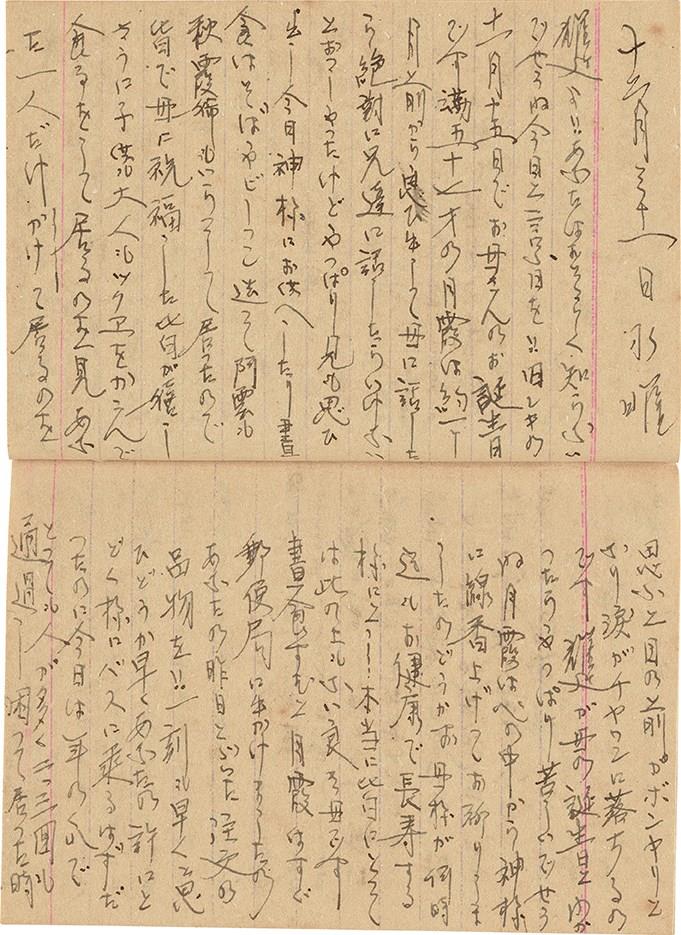 十二月三十一日水曜
雄次!!あなたはおそらく知らない
でせうね今日と言ふ日を!!旧レキの
十一月十五日でお母さんのお誕生日
です満五十七才の月霞は約一ヶ
月前から思ひ出して母に話した
ら絶対に兄達に話したらいけない
とおつしやつたけどやつぱり兄も思ひ
出し今日神様にお供へしたり晝
食はそばやビーフン造って阿雲も
秋霞姉もいらつして居つたので
皆で母に祝福した皆が嬉し
さうに子供も大人もツクエをかこんで
食るをして居るのを見あな
た一人だけかけて居るのを
思ふと目の前がボンヤリと
なり涙がチヤワンに落ちるの
です雄次が母の誕生日
つたらやっぱり苦しいでせう
ね月霞は心の中から神様
に線香上げてお祈りしま
したのどうかお母様が何時
迄もお健康で長寿する
様にと!!本当に皆にとって
は此の上もない良き母です
晝食すむと月霞はすぐ
郵便局に出かけましたの
あなたの昨日くださった注文の
品物を!!一刻も早く思
ひどうか早くあなたの許にと
どく様にバスに乗るはずだ
つたのに今日は年の瀬で
とっても人が多く二三回も
通過し困って居つた時